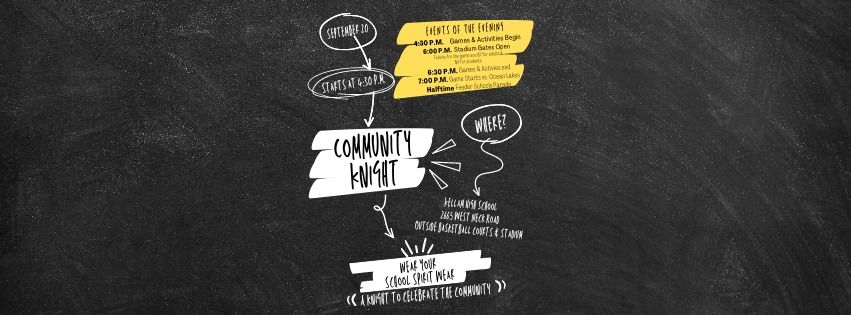 SEPTEMBER 20
STARTS AT 4:30 P.M.
EVENTS OF THE EVENING
4:30 P.M. Games & Activities Begin
6:00 P.M. Stadium Gates Open
Tickets for the game are $7 for adults &
for students
6:30 P.M. Games & Activies end
7:00 P.M. Game Starts vs. Ocean Lakes
Halftime Feeder Schools Parade
COMMUNITY
KNIGHT
WHERE?
KELLAM HIGH SCHOOL
2665 WEST NECK ROAD
OUTSIDE BASKETBALL COURTS & STADIUM
WEAR YOUR
SCHOOL SPIRIT WEAR
A KNIGHT TO CELEBRATE THE COMMUNITY